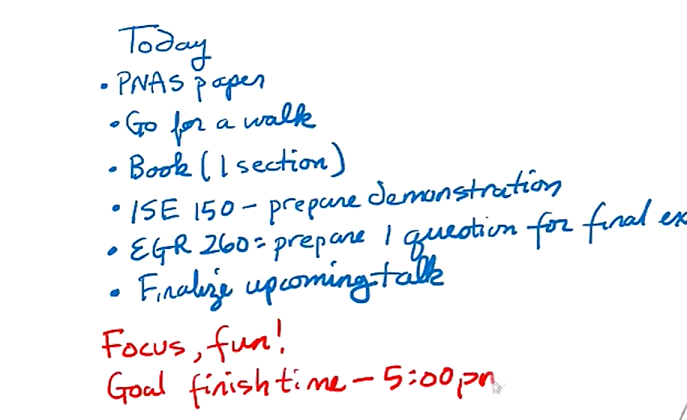 Today
• PNAS paper
• Go for a walk
• Book (1 section)
• ISE 150 - prepare demonstration
• EGR 260 = prepare 1 question for final ex
• Finalize upcoming talk
Focus, fun!
Goal finish time - 5:00 pm